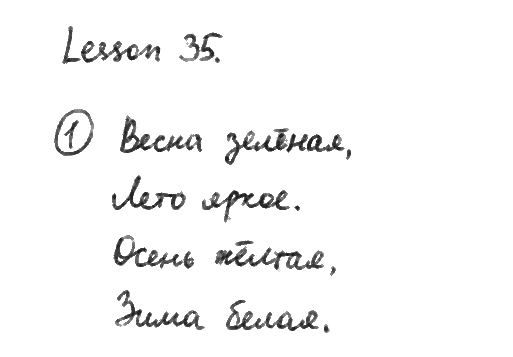 Lesson 35.
① Весна зелёная,
Лето яркое.
Осень жёлтая,
Зима белая.